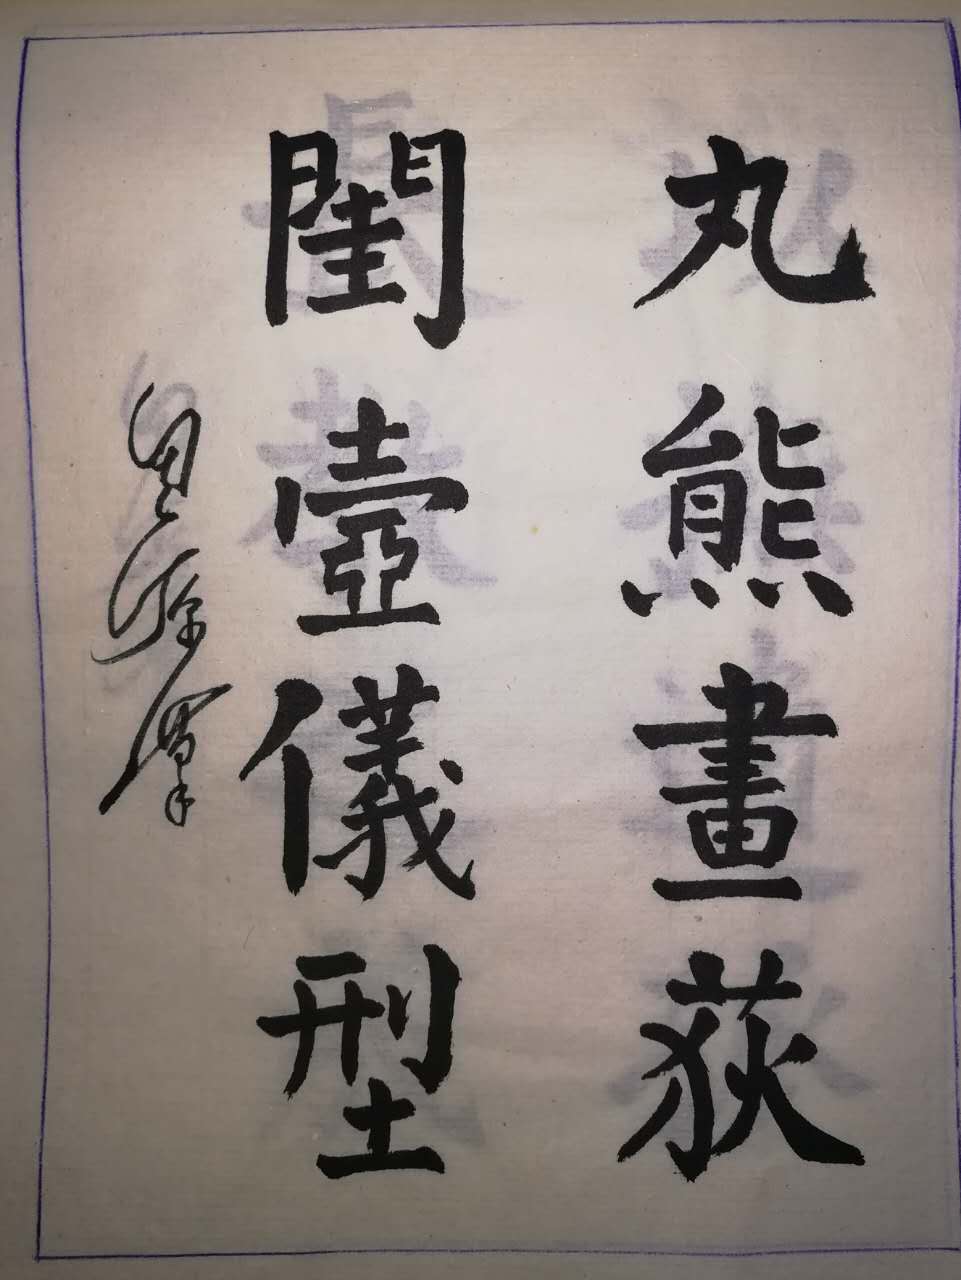 丸熊畫荻
閨壼儀型